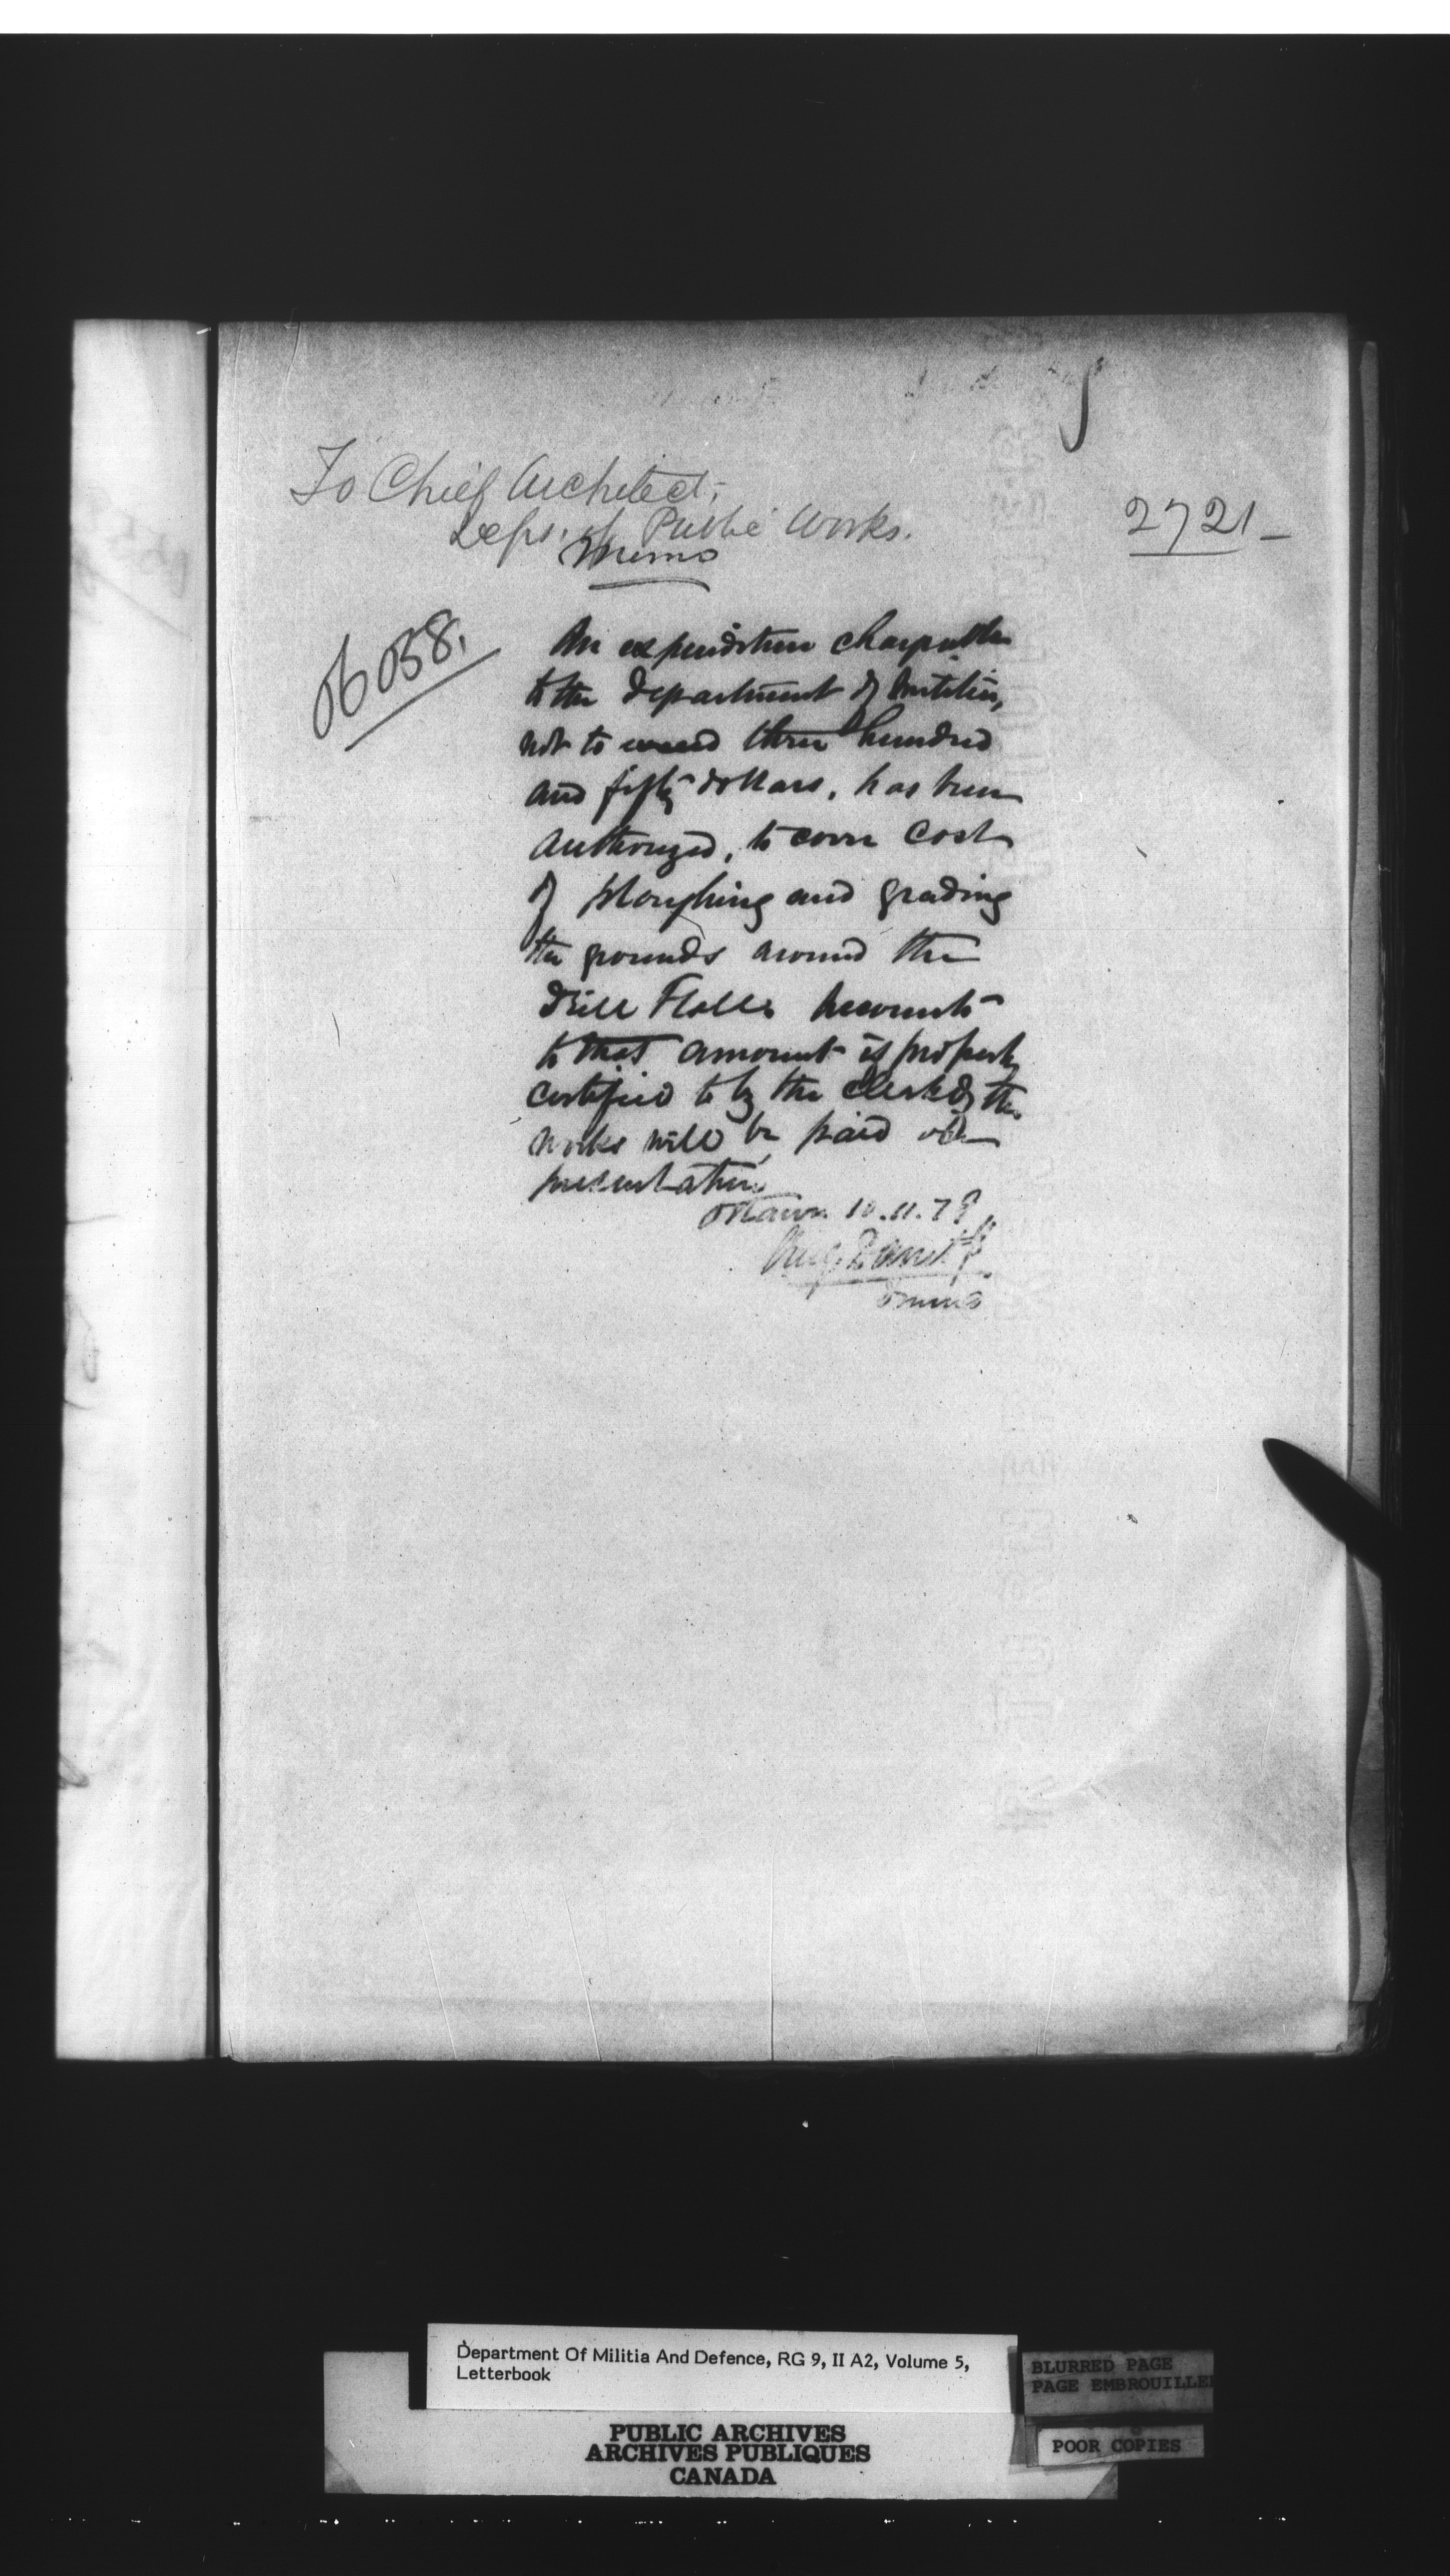 To Chief Architect,
Dept. of Public Works.
2721
Memo
06058.
An expenditure chargeable
to the department of Militia,
not to exceed three hundred
and fifty dollars, has been
authorized, to cover cost
of ploughing and grading
the grounds around the
drill Halls. Accounts
to that amount if properly
certified to by the clerk of the
works will be paid on
presentation.
Ottawa 10.11.79
Department Of Militia And Defence, RG 9, II A2, Volume 5,
Letterbook
BLURRED PAGE
PAGE EMBROUILLE
POOR COPIES
PUBLIC ARCHIVES
ARCHIVES PUBLIQUES
CANADA